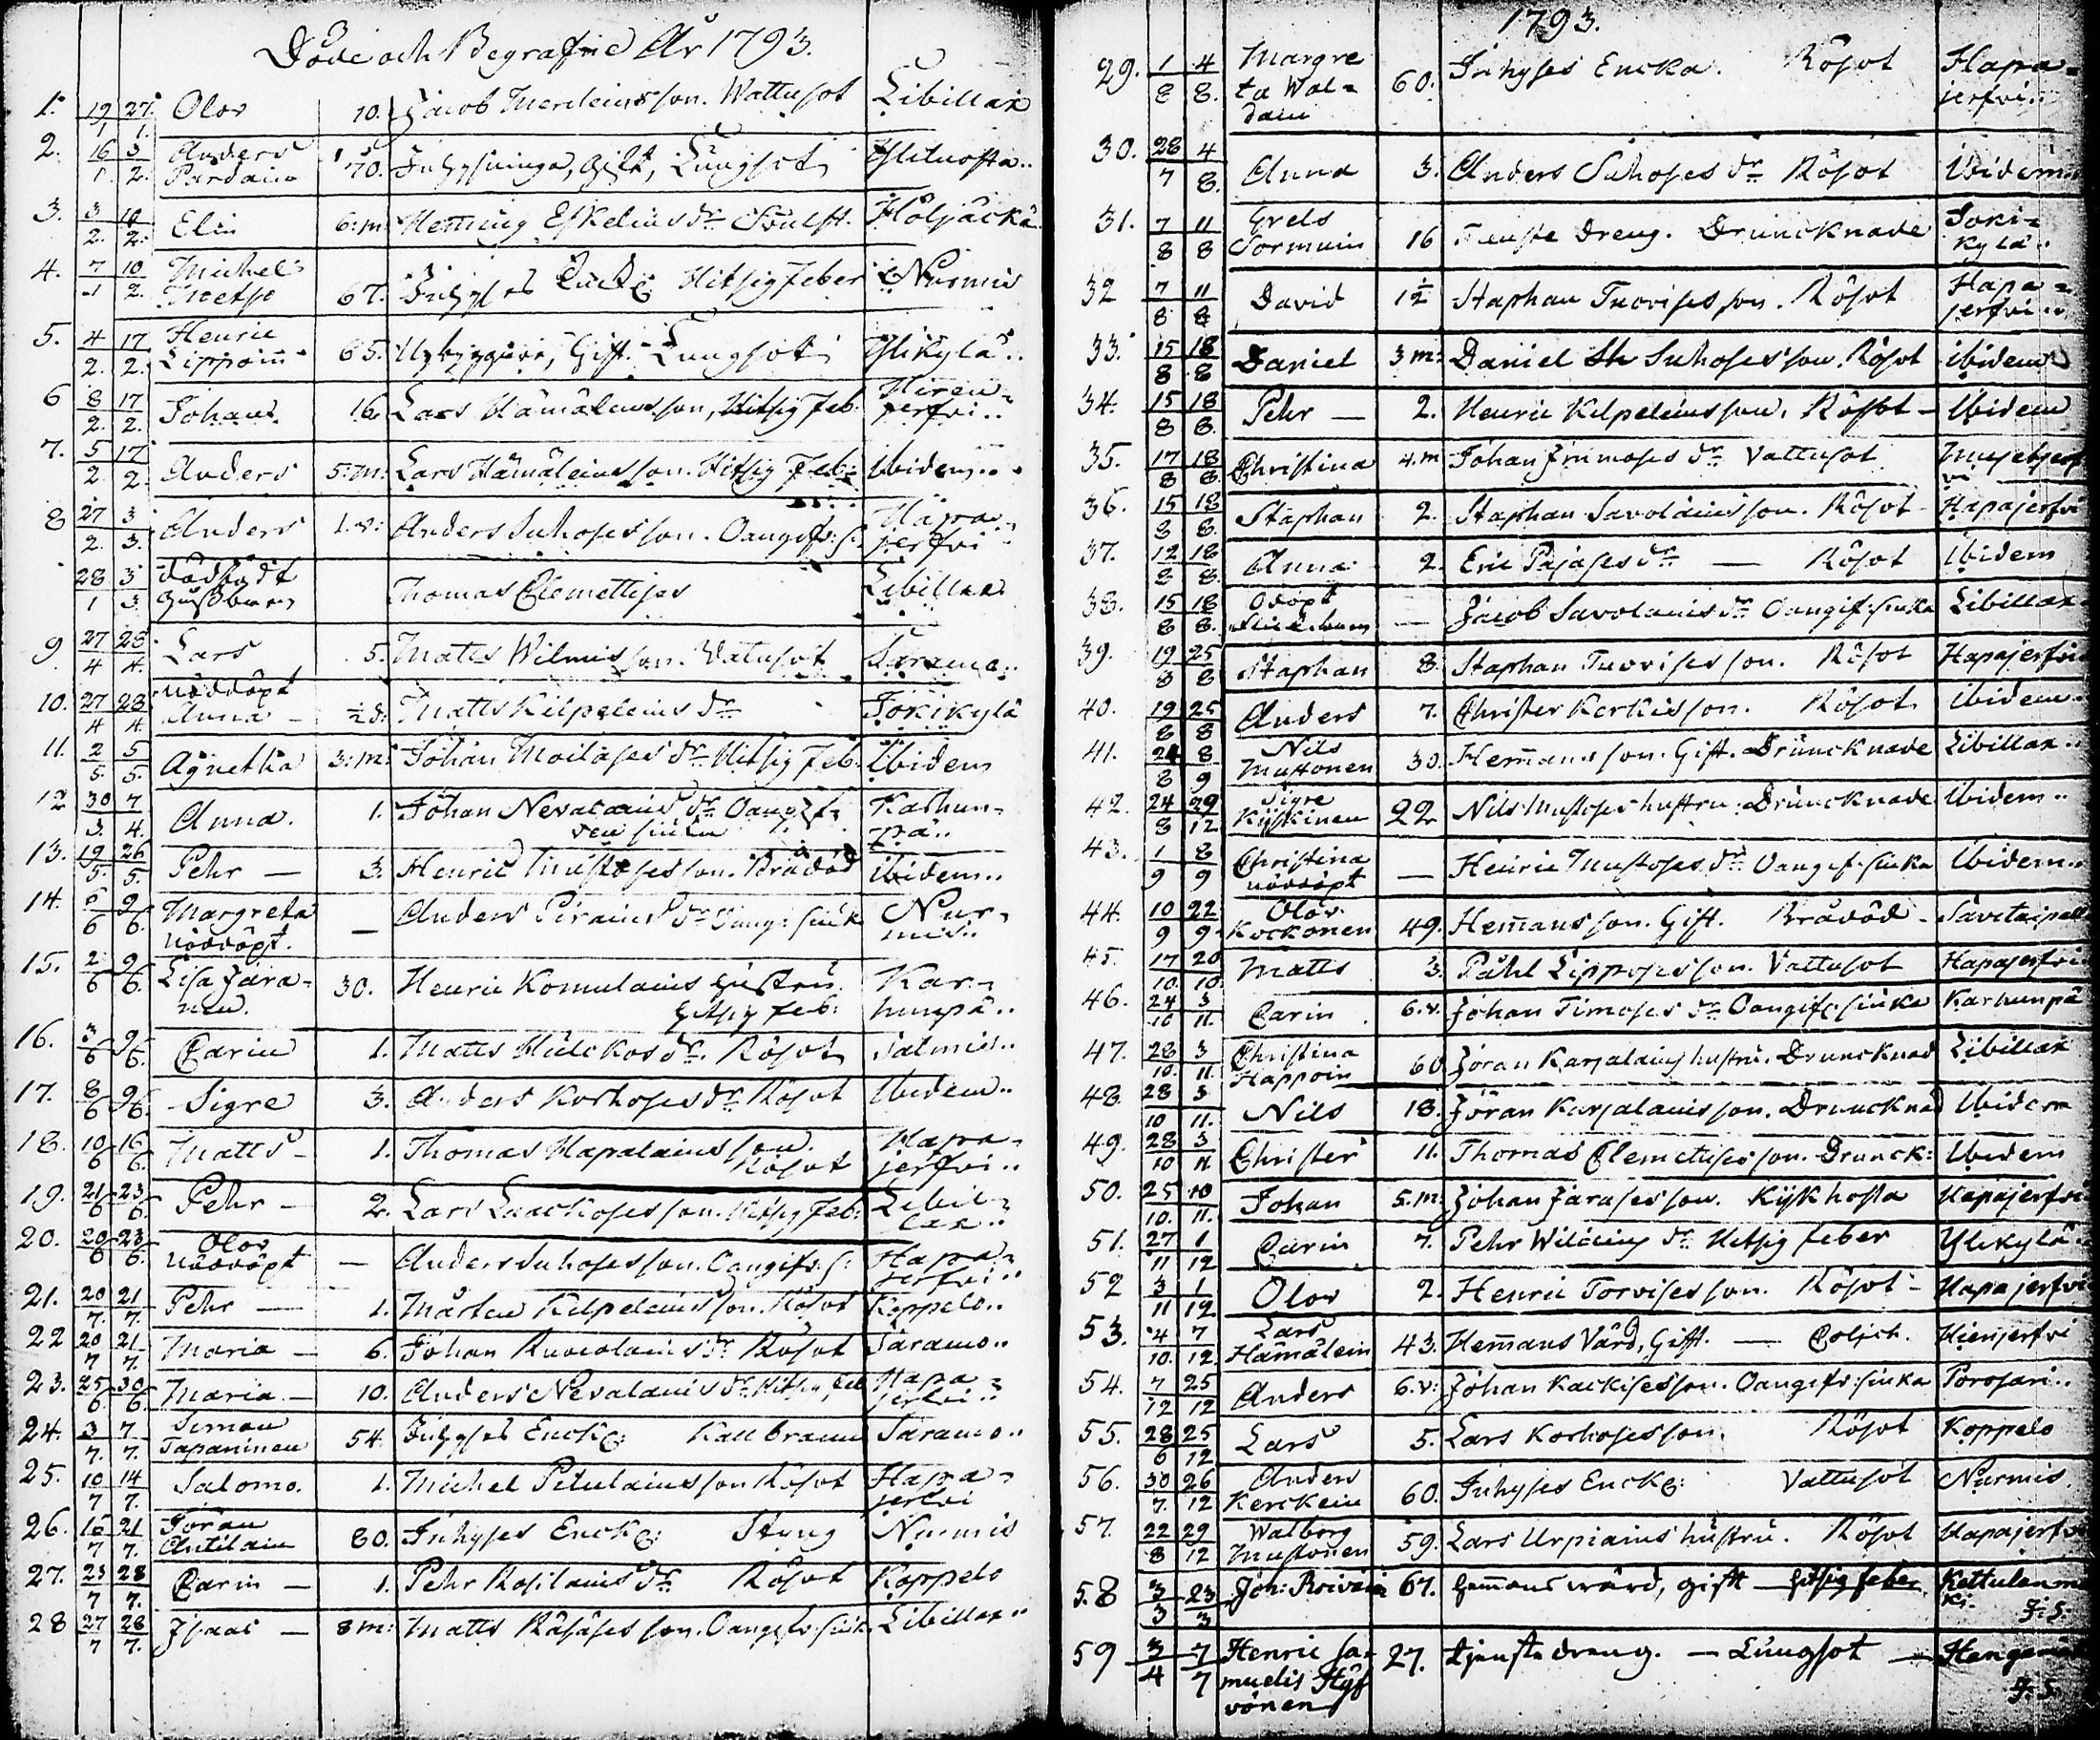 Döde och Begrafne År 1793.
1. 19/1 27/1. Olov 10. Jacob son. Wattusot Libillax
2. 16/1 3/2. Anders Pardain 70. gift, Lungsot
3. 3/2. 10/2. Elin 6:m: Henning Eskelins dr Höljäckä
4. 7/1 10/2. Michel Metso 67. Inhyses Hitsig Feber Nurmis
5. 4/2. 17/2. Henric Lippoin 65. Gift. Lungsot Ylikylä..
6 8/2. 17/2. Johan 16. Lars Hämäleins son, Hitsig Feb. Hirenjerfvi..
7. 5/2 17/2. Anders 5:m: Lars Hämäleins son. Hitsig Feb: Ibidem..
8 27/2. 3/3. Anders 1.v: Anders Suhoses son. Oangifv: s. Hapajerfvi
28/1 3/3 Dödfödt Thomas Clemettises Libillax
9 27/4 28/4. Lars 5. Matts Wilmis son. Vatusot Saramo..
10. 27/4 28/4. Nöddöpt Anna – ½ d: Matts Kilpeleins dr Jokikylä
11. 2/5. 5/5. Agnetha 3:m: Johan Moilases dr Hitsig Feb. Ibidem
12 30/3. 7/4. Anna. 1. Johan Nevalains dr Oangifven siuka Karhunpä..
13. 19/5. 26/5. Pehr – 3. Henric Mustoses son. Brådöd ibidem..
14. 6/6 9/6. Margreta nöddöpt. – Anders Pirains dr Oangf: siuk Nurmis..
15. 2/6 9/6. Lisa Järanen. 30. Henric Komulains hustru hitsig feb: Karhunpä..
16. 3/6 9/6. Carin 1. Matts Hulckos dr. Rösot Salmis..
17. 8/6 9/6. Sigre 3. Anders Korhoses dr Rösot Ibidem..
18. 10/6 16/6. Matts – 1. Thomas Hapalains son. Rösot Hapajerfvi..
19. 21/6 23/6. Pehr – 2. Lars Laackoses son. Hitsig feb: Libillax..
20. 20/6 23/6. Olov Nöddöpt – Anders Suhoses son. Oangifv: s: Hapajerfvi..
21. 20/7. 21/7. Pehr – 1. Mårten Kilpeleins son. Rösot Koppelo..
22 20/7 21/7. Maria – 6. Johan dr Rösot Saramo..
23. 25/6 30/6. Maria – 10. Anders Nevalains dr Hitsig feb Hapajerfvi..
24. 3/7. 7/7. Simon Tapaninen 54. Inhyses Enck: Kallbrann Saramo..
25. 10/7 14/7. Salomo. 1. Michel Pitulains son Rösot Hapajerfvi
26. 16/7 21/7. Jöran Antilain 80. Inhyses Enck: Styng Nurmis
27. 23/7 28/7. Carin – 1. Pehr Rosilains dr Rösot Koppelo
28 27/7 28/7. Isaac – 8 m: Matts Räsäses son. Oangifv: siuk. Libillax..
1793.
29. 1/8 4/8. Margreta Waldain 60. Inhyses Encka. Rösot Hapajerfvi..
30. 28/7 4/8. Anna 3. Anders Suhoses dr Rösot Ibidem
31. 7/8 11/8 Grels Sormuin 16 Tienste Dreng. Drunknade Jokikylä..
32 7/8 11/8 David 1½ Staphan Tuovises son. Rösot Hapajerfvi..
33. 15/8 18/8 Daniel 3 m: Daniel Suhoses son. Rösot ibidem
34. 15/8 18/8. Pehr – 2. Henric Kilpeleins son. Rösot – Ibidem
35. 17/8 18/8. Christina 4.m Johan Immoses dr Vattusot
36. 15/8 18/8. Staphan 2. Staphan Savolains son. Rösot – Hapajerfvi
37. 12/8 18/8. Anna 2. Eric Pajases dr – Rösot Ibidem
38. 15/8 18/8. Odöpt – Jacob Savolains dr Oangif: siuka Libillax
39. 19/8 25/8 Staphan 8. Staphan Tuovises son. Rösot Hapajerfvi
40. 19/8 25/8 Anders 7. Christer Kerkis son. Rösot Ibidem
41. 24/8 8/9 Nils Mustonen 30. Hemmans son. Gift. Druncknade Libillax..
42. 24/8 29/12 Sigre Kyskinen 22 Nils Mustoses hustru. Druncknade Ibidem..
43. 1/9 8/9 Christina nöddöpt – Henric Mustoses dr Oangif: siuka Ibidem..
44. 10/9 22/9 Olov Kockonen 49. Hemmans son. Gift. Brådöd – Savitaipall
45. 17/10. 20/10. Matts 3. Påhl Lipposes son. Vattusot Hapajerfvi
46. 24/10 3/11. Carin 6.v. Johan Timoses dr Oangif: siuka Karhunpä
47. 28/10 3/11. Christina Happoin 60 Jöran Karjalains hustru. Druncknad Libillax
48. 28/10 3/11. Nils 18. Jöran Karjalains son. Druncknad Ibidem
49. 28/10 3/11 Christer 11. Thomas Clemettises son. Drunck: Ibidem
50. 25/10. 10/11. Johan 5.m: Johan Jarases son. Kijkhosta Hapajerfvi
51. 27/11 1/12 Carin 7. Pehr dr Hitsig feber Ylikylä..
52 3/11 1/12 Olov 2. Henric Torvises son. Rösot – Hapajerfvi
53. 4/10. 7/12. Lars Hämälein 43. Hemmans Värd, Gift. – Colich.
54. 7/12 25/12 Anders 6.v: Johan Kackises son. Oangifv: siuka Porosari..
55. 28/6 25/12 Lars 5. Lars Korhoses son. Rösot Koppelo
56. 30/7. 26/12 Anders Kerckein 60. Inhyses Enck: Vattusot Nurmis
57. 22/8 29/12 Walborg Mustonen 59. Lars Urpiains hustru. Rösot Hapajerfvi
58 3/3 23/3 Joh: Roivain 67. hemmans wärd, gift – hitsig feber Kettulanmäki. J: S:
59 3/4 7/7 Henric Samuelis Hyfvönen 27. tjenste dreng. – Lungsot – J: S: